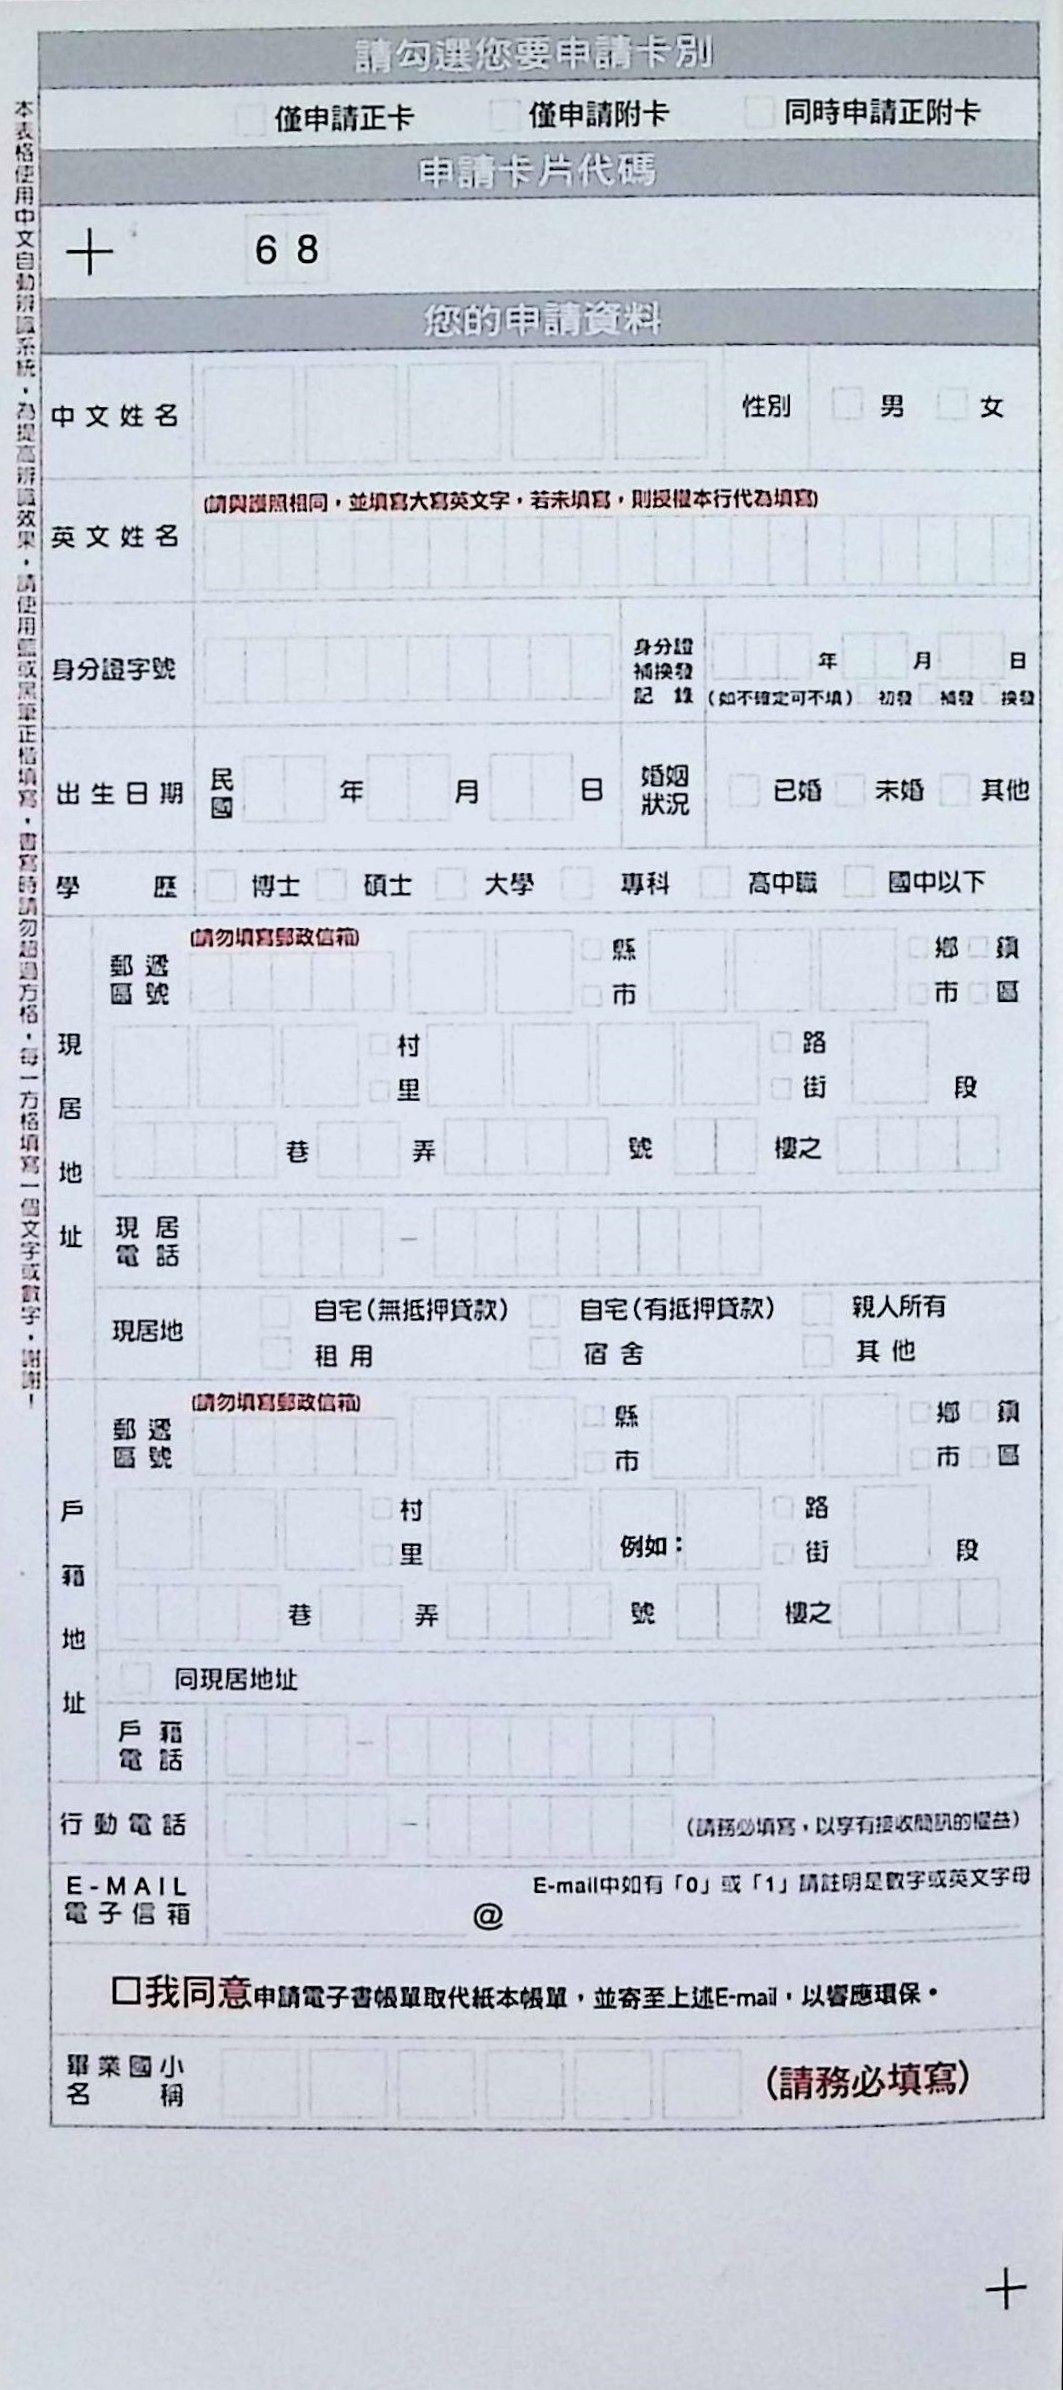 請勾選您要申請卡別
僅申請正卡 僅申請附卡 同時申請正附卡
申請卡片代碼
68
您的申請資料
中文姓名 性別 男 女
(請與護照相同，並填寫大寫英文字，若未填寫，則授權本行代為填寫)
英文姓名
身分證字號 身分證補換發記錄 年 月 日
(如不確定可不填) 初發 補發 換發
出生日期 民國 年 月 日 婚姻狀況 已婚 未婚 其他
學歷 博士 碩士 大學 專科 高中職 國中以下
現居地址
(請勿填寫郵政信箱)
郵遞區號 縣 市 鄉 鎮 市 區
村 里 路 街 段
巷 弄 號 樓之
現居電話 –
現居地 自宅(無抵押貸款) 自宅(有抵押貸款) 親人所有
租用 宿舍 其他
戶籍地址
(請勿填寫郵政信箱)
郵遞區號 縣 市 鄉 鎮 市 區
村 里 例如： 路 街 段
巷 弄 號 樓之
同現居地址
戶籍電話 –
行動電話 – (請務必填寫，以享有接收簡訊的權益)
E-MAIL 電子信箱 @ E-mail中如有「0」或「1」請註明是數字或英文字母
□我同意申請電子書帳單取代紙本帳單，並寄至上述E-mail，以響應環保。
畢業國小名稱 (請務必填寫)
本表格使用中文自動辨識系統，為提高辨識效果，請使用藍或黑筆正楷填寫，書寫時請勿超過方格，每一方格填寫一個文字或數字，謝謝！